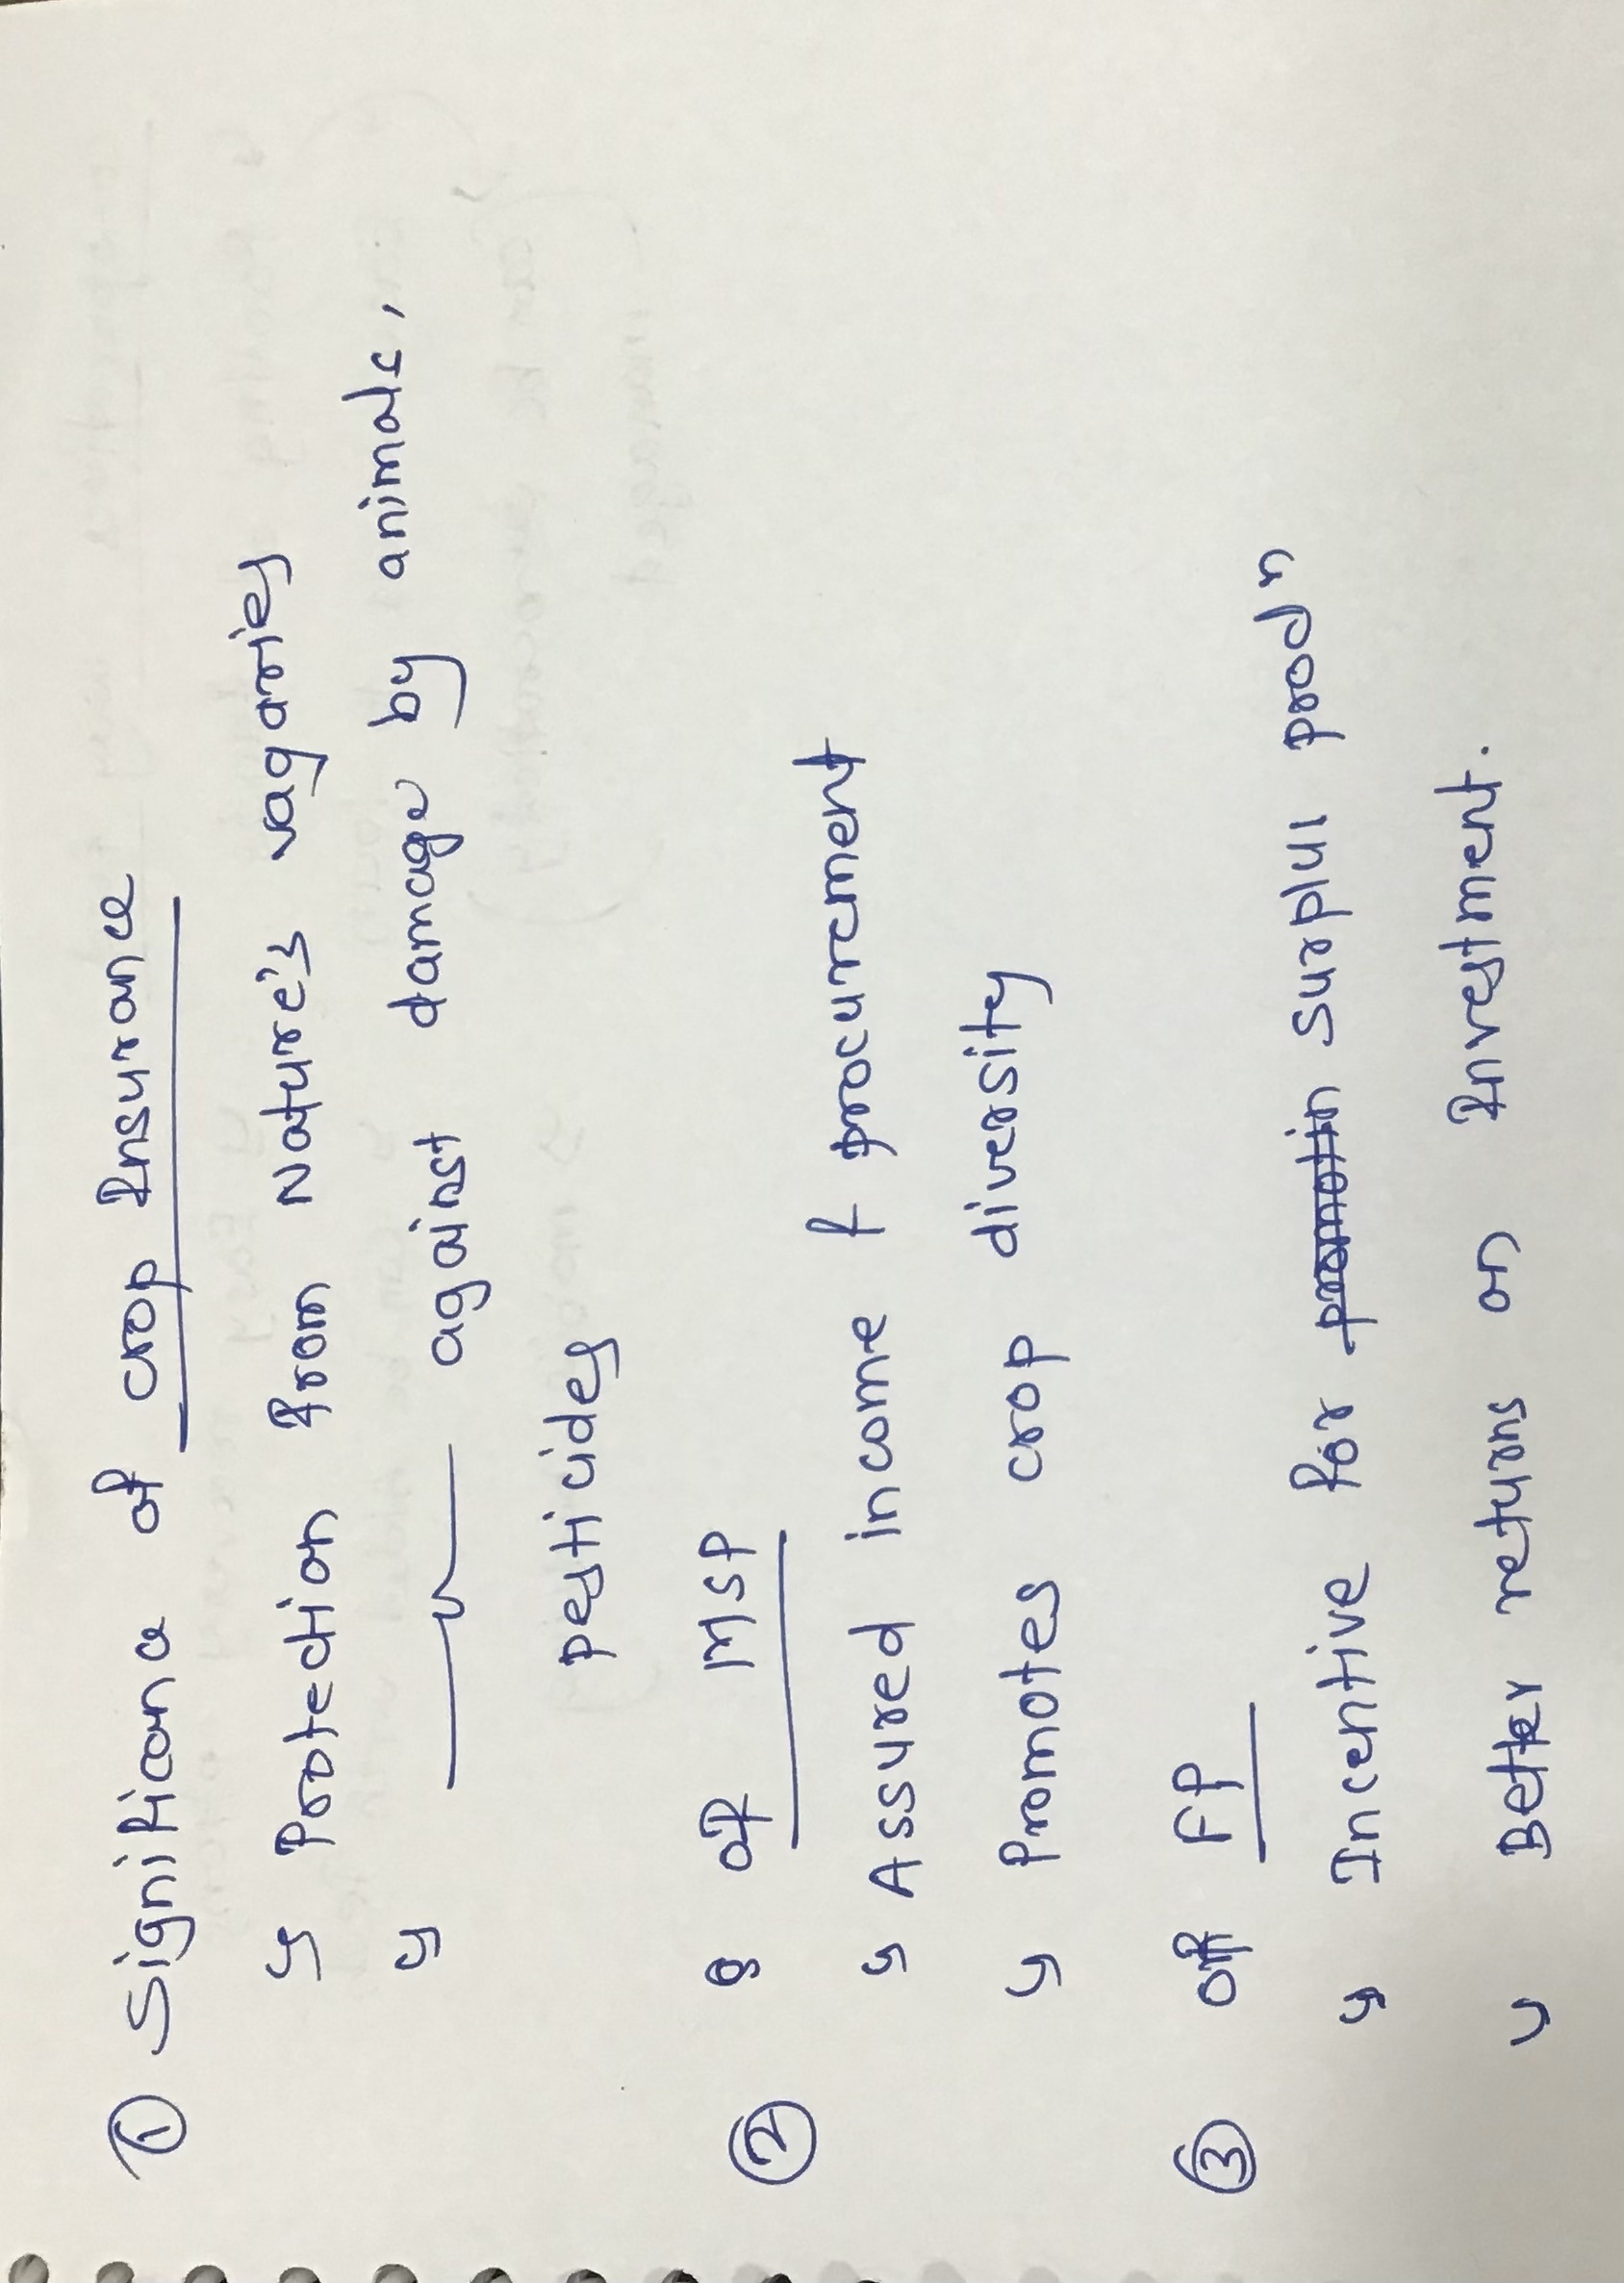 ① Significance of crop Insurance
↳ Protection from Nature's vagaries
↳ —〃— against damage by animals,
pesticides
② of MSP
↳ Assured income & procurement
↳ Promotes crop diversity
③ of FP
↳ Incentive for surplus prodⁿ
↳ Better returns on Investment.